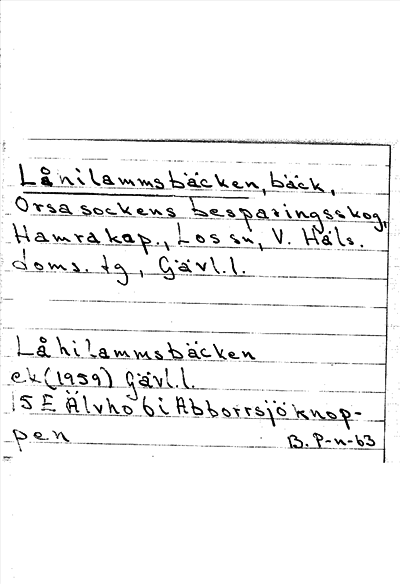 Lånilammsbäcken, bäck,
Orsa sockens besparingsskog,
Hamra kap., Los sn, V. Häls.
doms. tg, Gävl.l.
Låhilammsbäcken
ek (1959) Gävl.l.
15 E Älvho 6 i Abborrsjöknop-
pen B. P-n-63